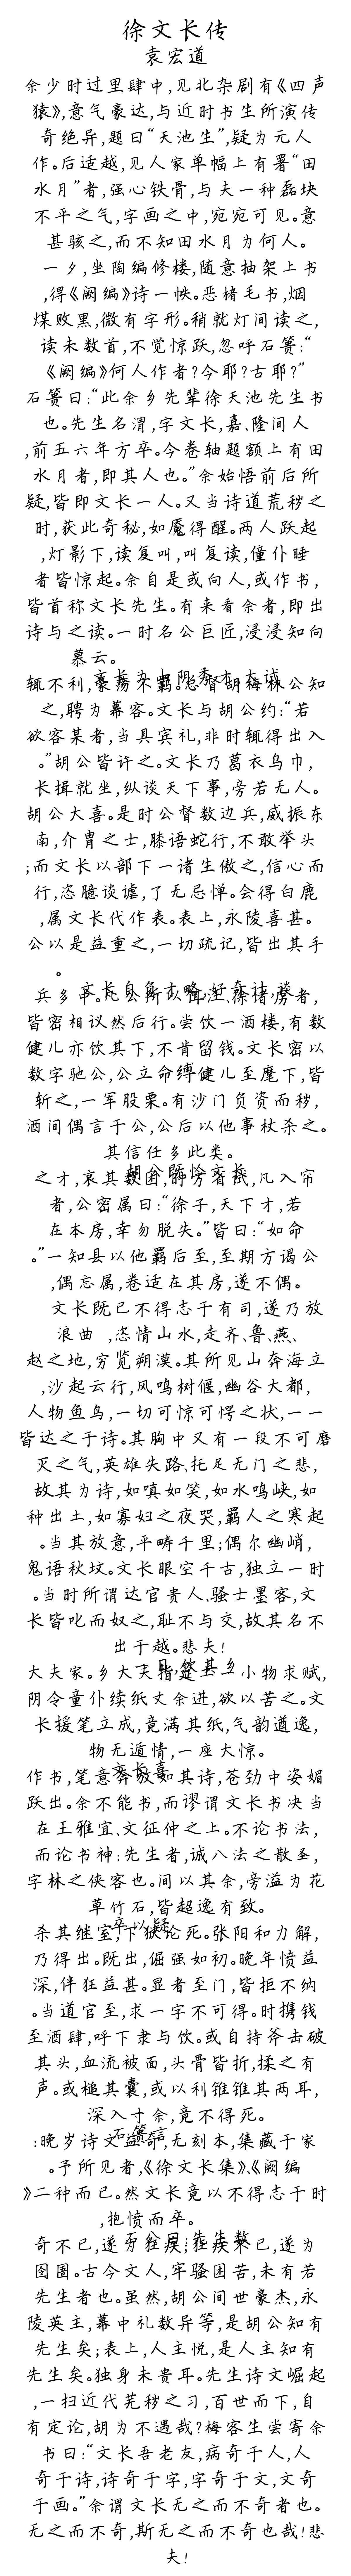 徐文长传
袁宏道
余少时过里肆中,见北杂剧有《四声
猿》,意气豪达,与近时书生所演传
奇绝异,题曰“天池生”,疑为元人
作。后适越,见人家单幅上有署“田
水月”者,强心铁骨,与夫一种磊块
不平之气,字画之中,宛宛可见。意
甚骇之,而不知田水月为何人。
一夕,坐陶编修楼,随意抽架上书
,得《阙编》诗一帙。恶楮毛书,烟
煤败黑,微有字形。稍就灯间读之,
读未数首,不觉惊跃,忽呼石篑:“
《阙编》何人作者?今耶?古耶?”
石篑曰:“此余乡先辈徐天池先生书
也。先生名渭,字文长,嘉、隆间人
,前五六年方卒。今卷轴题额上有田
水月者,即其人也。”余始悟前后所
疑,皆即文长一人。又当诗道荒秽之
时,获此奇秘,如魇得醒。两人跃起
,灯影下,读复叫,叫复读,僮仆睡
者皆惊起。余自是或向人,或作书,
皆首称文长先生。有来看余者,即出
诗与之读。一时名公巨匠,浸浸知向
慕云。
文长为山阴秀才,大试
辄不利,豪荡不羁。总督胡梅林公知
之,聘为幕客。文长与胡公约:“若
欲客某者,当具宾礼,非时辄得出入
。”胡公皆许之。文长乃葛衣乌巾,
长揖就坐,纵谈天下事,旁若无人。
胡公大喜。是时公督数边兵,威振东
南,介胄之士,膝语蛇行,不敢举头
;而文长以部下一诸生傲之,信心而
行,恣臆谈谑,了无忌惮。会得白鹿
,属文长代作表。表上,永陵喜甚。
公以是益重之,一切疏记,皆出其手
。
文长自负才略,好奇计,谈
兵多中。凡公所以饵汪、徐诸虏者,
皆密相议然后行。尝饮一酒楼,有数
健儿亦饮其下,不肯留钱。文长密以
数字驰公,公立命缚健儿至麾下,皆
斩之,一军股栗。有沙门负资而秽,
酒间偶言于公,公后以他事杖杀之。
其信任多此类。
胡公既怜文长
之才,哀其数困,时方省试,凡入帘
者,公密属曰:“徐子,天下才,若
在本房,幸勿脱失。”皆曰:“如命
。”一知县以他羁后至,至期方谒公
,偶忘属,卷适在其房,遂不偶。
文长既已不得志于有司,遂乃放
浪曲 ,恣情山水,走齐、鲁、燕、
赵之地,穷览朔漠。其所见山奔海立
,沙起云行,风鸣树偃,幽谷大都,
人物鱼鸟,一切可惊可愕之状,一一
皆达之于诗。其胸中又有一段不可磨
灭之气,英雄失路、托足无门之悲,
故其为诗,如嗔如笑,如水鸣峡,如
种出土,如寡妇之夜哭,羁人之寒起
。当其放意,平畴千里;偶尔幽峭,
鬼语秋坟。文长眼空千古,独立一时
。当时所谓达官贵人、骚士墨客,文
长皆叱而奴之,耻不与交,故其名不
出于越。悲夫!
一日,饮其乡
大夫家。乡大夫指筵上一小物求赋,
阴令童仆续纸丈余进,欲以苦之。文
长援笔立成,竟满其纸,气韵遒逸,
物无遁情,一座大惊。
文长喜
作书,笔意奔放如其诗,苍劲中姿媚
跃出。余不能书,而谬谓文长书决当
在王雅宜、文征仲之上。不论书法,
而论书神:先生者,诚八法之散圣,
字林之侠客也。间以其余,旁溢为花
草竹石,皆超逸有致。
卒以疑
杀其继室,下狱论死。张阳和力解,
乃得出。既出,倔强如初。晚年愤益
深,佯狂益甚。显者至门,皆拒不纳
。当道官至,求一字不可得。时携钱
至酒肆,呼下隶与饮。或自持斧击破
其头,血流被面,头骨皆折,揉之有
声。或槌其囊,或以利锥锥其两耳,
深入寸余,竟不得死。
石篑言
:晚岁诗文益奇,无刻本,集藏于家
。予所见者,《徐文长集》、《阙编
》二种而已。然文长竟以不得志于时
,抱愤而卒。
石公曰:先生数
奇不已,遂为狂疾;狂疾不已,遂为
囹圄。古今文人,牢骚困苦,未有若
先生者也。虽然,胡公间世豪杰,永
陵英主,幕中礼数异等,是胡公知有
先生矣;表上,人主悦,是人主知有
先生矣。独身未贵耳。先生诗文崛起
,一扫近代芜秽之习,百世而下,自
有定论,胡为不遇哉?梅客生尝寄余
书曰:“文长吾老友,病奇于人,人
奇于诗,诗奇于字,字奇于文,文奇
于画。”余谓文长无之而不奇者也。
无之而不奇,斯无之而不奇也哉!悲
夫!